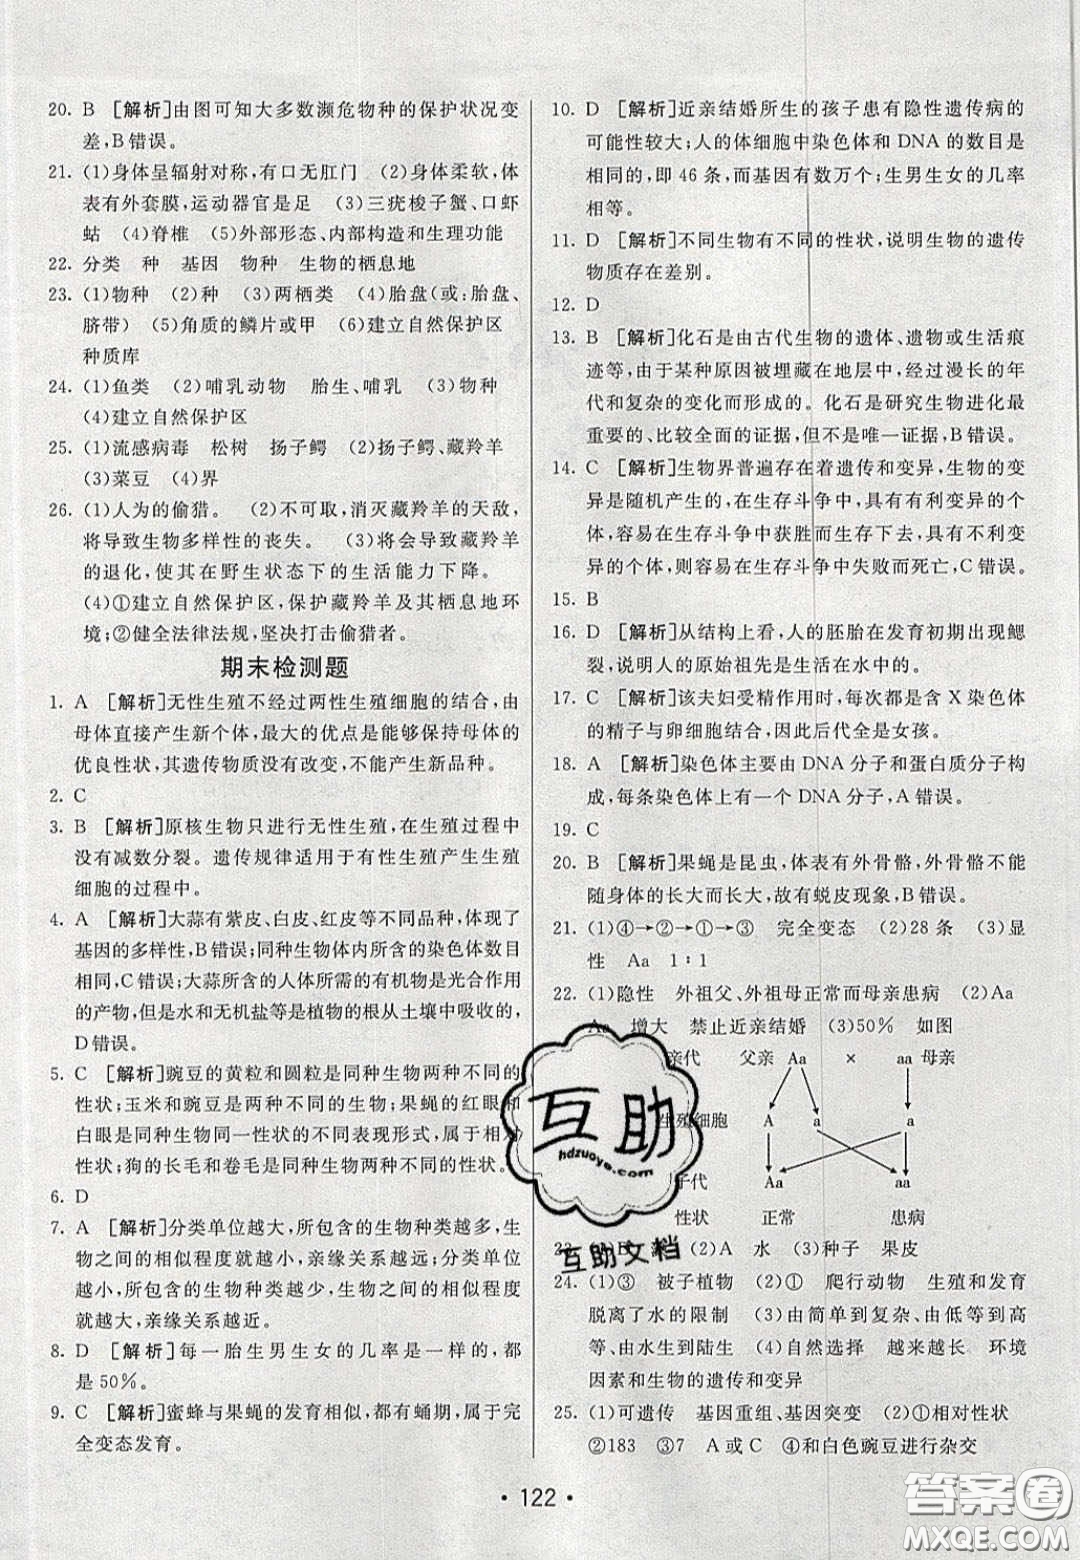 20. B [解析]由图可知大多数濒危物种的保护状况变
差,B错误。
21. (1)身体呈辐射对称,有口无肛门 (2)身体柔软,体
表有外套膜,运动器官是足 (3)三疣梭子蟹、口虾
蛄 (4)脊椎 (5)外部形态、内部构造和生理功能
22. 分类 种 基因 物种 生物的栖息地
23. (1)物种 (2)种 (3)两栖类 (4)胎盘(或:胎盘、
脐带) (5)角质的鳞片或甲 (6)建立自然保护区
种质库
24. (1)鱼类 (2)哺乳动物 胎生、哺乳 (3)物种
(4)建立自然保护区
25. (1)流感病毒 松树 扬子鳄 (2)扬子鳄、藏羚羊
(3)菜豆 (4)界
26. (1)人为的偷猎。 (2)不可取,消灭藏羚羊的天敌,
将导致生物多样性的丧失。 (3)将会导致藏羚羊
的退化,使其在野生状态下的生活能力下降。
(4)①建立自然保护区,保护藏羚羊及其栖息地环
境;②健全法律法规,坚决打击偷猎者。
期末检测题
1. A [解析]无性生殖不经过两性生殖细胞的结合,由
母体直接产生新个体,最大的优点是能够保持母体的
优良性状,其遗传物质没有改变,不能产生新品种。
2. C
3. B [解析]原核生物只进行无性生殖,在生殖过程中
没有减数分裂。遗传规律适用于有性生殖产生生殖
细胞的过程中。
4. A [解析]大蒜有紫皮、白皮、红皮等不同品种,体现了
基因的多样性,B错误;同种生物体内所含的染色体数目
相同,C错误;大蒜所含的人体所需的有机物是光合作用
的产物,但是水和无机盐等是植物的根从土壤中吸收的,
D错误。
5. C [解析]豌豆的黄粒和圆粒是同种生物两种不同的
性状;玉米和豌豆是两种不同的生物;果蝇的红眼和
白眼是同种生物同一性状的不同表现形式,属于相对
性状;狗的长毛和卷毛是同种生物两种不同的性状。
6. D
7. A [解析]分类单位越大,所包含的生物种类越多,生
物之间的相似程度就越小,亲缘关系越远;分类单位
越小,所包含的生物种类越少,生物之间的相似程度
就越大,亲缘关系越近。
8. D [解析]每一胎生男生女的几率是一样的,都
是50%。
9. C [解析]蜜蜂与果蝇的发育相似,都有蛹期,属于完
全变态发育。
10. D [解析]近亲结婚所生的孩子患有隐性遗传病的
可能性较大;人的体细胞中染色体和DNA的数目是
相同的,即46条,而基因有数万个;生男生女的几率
相等。
11. D [解析]不同生物有不同的性状,说明生物的遗传
物质存在差别。
12. D
13. B [解析]化石是由古代生物的遗体、遗物或生活痕
迹等,由于某种原因被埋藏在地层中,经过漫长的年
代和复杂的变化而形成的。化石是研究生物进化最
重要的、比较全面的证据,但不是唯一证据,B错误。
14. C [解析]生物界普遍存在着遗传和变异,生物的变
异是随机产生的,在生存斗争中,具有有利变异的个
体,容易在生存斗争中获胜而生存下去,具有不利变
异的个体,则容易在生存斗争中失败而死亡,C错误。
15. B
16. D [解析]从结构上看,人的胚胎在发育初期出现鳃
裂,说明人的原始祖先是生活在水中的。
17. C [解析]该夫妇受精作用时,每次都是含X染色体
的精子与卵细胞结合,因此后代全是女孩。
18. A [解析]染色体主要由DNA分子和蛋白质分子构
成,每条染色体上有一个DNA分子,A错误。
19. C
20. B [解析]果蝇是昆虫,体表有外骨骼,外骨骼不能
随身体的长大而长大,故有蜕皮现象,B错误。
21. (1)④→②→①→③ 完全变态 (2)28条 (3)显
性 Aa 1∶1
22. (1)隐性 外祖父、外祖母正常而母亲患病 (2)Aa
Aa 增大 禁止近亲结婚 (3)50% 如图
亲代 父亲 Aa × aa 母亲
生殖细胞 A a a
子代 Aa aa
性状 正常 患病
(2)A 水 (3)种子 果皮
24. (1)③ 被子植物 (2)① 爬行动物 生殖和发育
脱离了水的限制 (3)由简单到复杂、由低等到高
等、由水生到陆生 (4)自然选择 越来越长 环境
因素和生物的遗传和变异
25. (1)可遗传 基因重组、基因突变 (2)①相对性状
②183 ③7 A或C ④和白色豌豆进行杂交
互助
hdzuoye.com
互助文档
• 122 •
答案圈
MXQE.COM